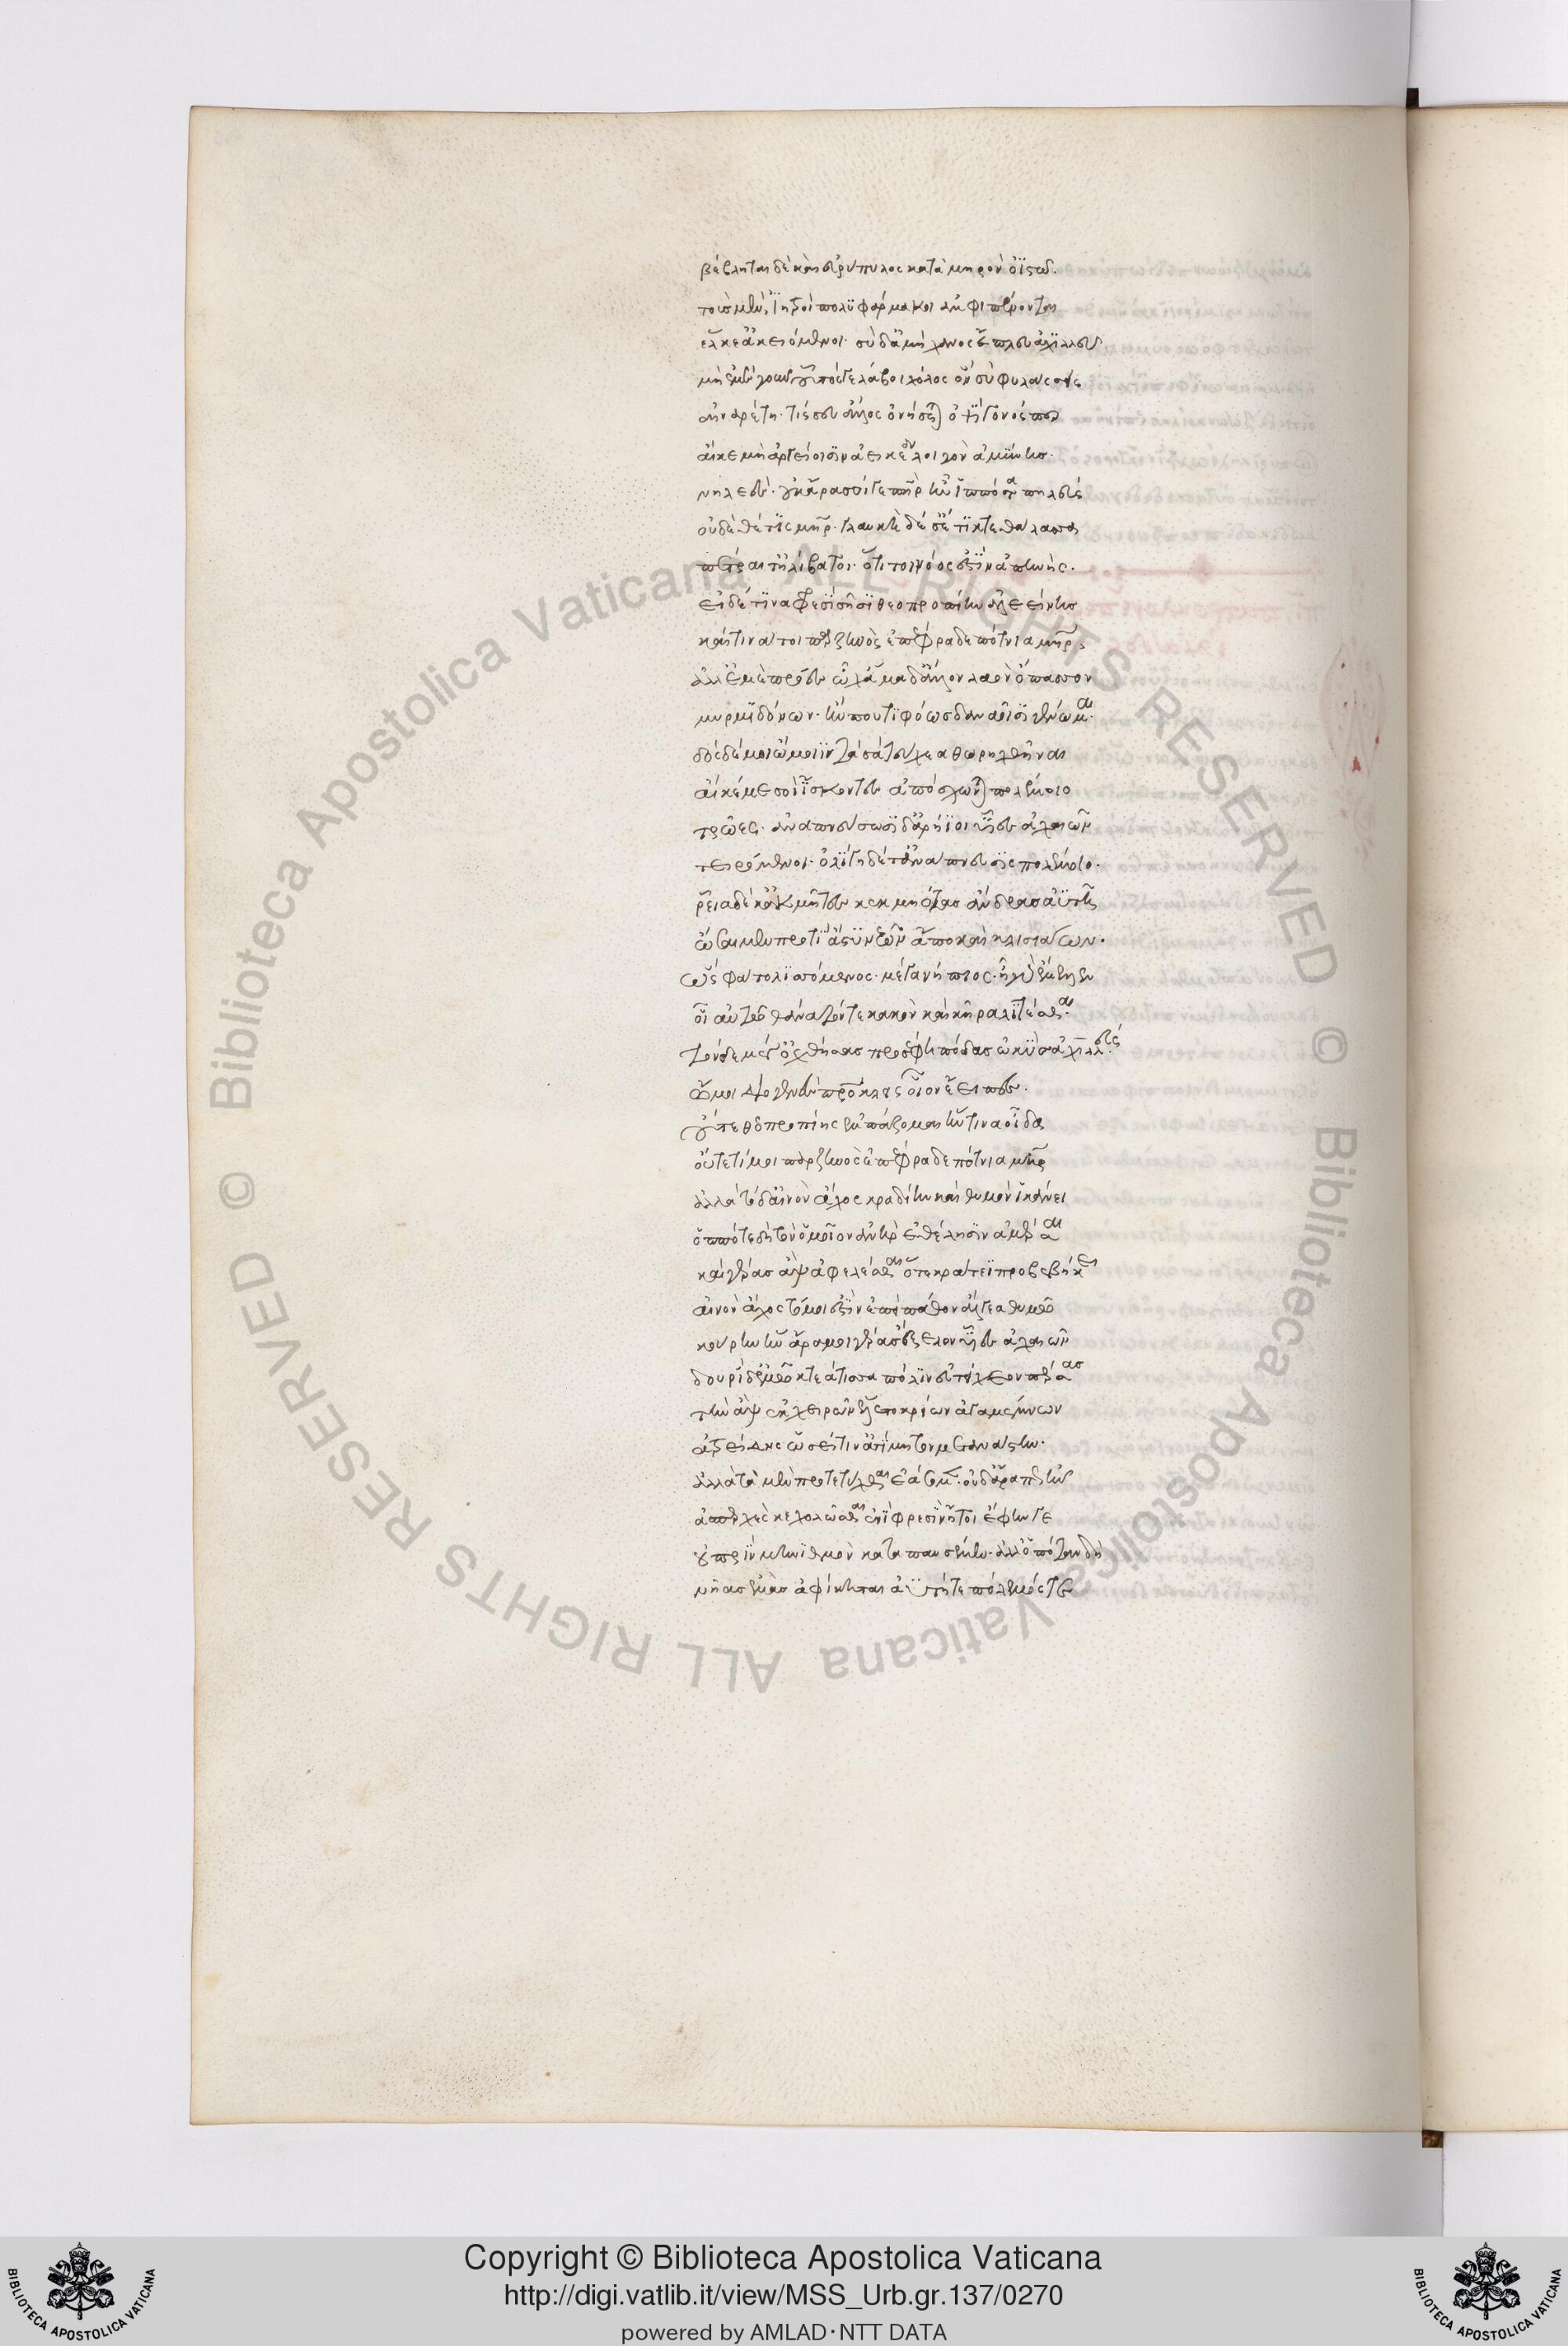 βέβληται δὲ καὶ εὐρύπυλος κατὰ μηρὸν ὀϊστῶ.
τοὺς μὲν ἰητροὶ πολυφάρμακοι ἀμφιπένονται
ἕλκε ἀκειόμενοι. σὺ δ' ἀμήχανος ἔπλευ ἀχιλλεῦ
μὴ ἐμὲ γοῦν οὗτός γε λάβοι χόλος ὃν σὺ φυλάσσεις
αἰναρέτη. τί σευ ἄλλος ὀνήσεται ὀψίγονός περ
αἴκε μὴ ἀργείοισιν ἀεικέα λοιγὸν ἀμύνης.
νηλεές. οὐκ ἄρα σοί γε πατὴρ ἦν ἱππότα πηλεύς
οὐδὲ θέτις μήτηρ. γλαυκὴ δέ σε τίκτε θάλασσα
πέτραι τ' ἠλίβατοι. ὅτι τοι νόος ἐστὶν ἀπηνής.
εἰ δέ τινα φρεσὶ σῆσι θεοπροπίην ἀλεείνεις
καί τινά τοι πὰρ ζηνὸς ἐπέφραδε πότνια μήτηρ
ἀλλ' ἐμέ περ πρόες ὦχ' ἅμα δ' ἄλλον λαὸν ὄπασσον
μυρμιδόνων. ἤν πού τι φόως δαναοῖσι γένωμαι.
δὸς δέ μοι ὤμοιϊν τὰ σὰ τεύχεα θωρηχθῆναι
αἴκέ με σοὶ ἴσκοντες ἀπόσχωνται πολέμοιο
τρῶες. ἀναπνεύσωσι δ' ἀρήϊοι υἷες ἀχαιῶν
τειρόμενοι. ὀλίγη δέ τ' ἀνάπνευσις πολέμοιο.
ῥεῖα δέ κ' ἀκμῆτες κεκμηότας ἄνδρας ἀϋτῇ
ὤσαιμεν προτὶ ἄστυ νεῶν ἄπο καὶ κλισιάων.
ὣς φάτο λισσόμενος. μέγα νήπιος. ἦ γὰρ ἔμελλεν
οἷ αὐτῶ θάνατόν τε κακὸν καὶ κῆρα λιτέσθαι.
τὸν δὲ μέγ' ὀχθήσας προσέφη πόδας ὠκὺς ἀχιλλεύς.
ὤ μοι διογενὲς πατρόκλεις οἷον ἔειπες.
οὔτε θεοπροπίης ἐμπάζομαι ἥν τινα οἶδα
οὔτε τί μοι πὰρ ζηνὸς ἐπέφραδε πότνια μήτηρ
ἀλλὰ τόδ' αἰνὸν ἄχος κραδίην καὶ θυμὸν ἱκάνει
ὁππότε δὴ τὸν ὁμοῖον ἀνὴρ ἐθέλησιν ἀμέρσαι
καὶ γέρας ἂψ ἀφελέσθαι ὅτε κράτεϊ προβεβήκει
αἰνὸν ἄχος τό μοι ἐστὶν ἐπεὶ πάθον ἄλγεα θυμῶ
κούρην ἣν ἄρα μοι γέρας ἔξελον υἷες ἀχαιῶν
δουρὶ δ' ἐμῶ κτεάτισσα πόλιν εὐτείχεον πέρσας
τὴν ἂψ ἐκ χειρῶν ἕλετο κρείων ἀγαμέμνων
ἀτρείδης ὡς εἴ τιν' ἀτίμητον μετανάστην.
ἀλλὰ τὰ μὲν προτετύχθαι ἐάσομεν. οὐδ' ἄρα πως ἦν
ἀσπερχὲς κεχολῶσθαι ἐνὶ φρεσὶν ἤτοι ἔφην γε
οὐ πρὶν μηνιθμὸν καταπαυσέμεν. ἀλλ' ὁπόταν δὴ
νῆας ἐμὰς ἀφίκηται ἀϋτή τε πόλεμός τε
Copyright © Biblioteca Apostolica Vaticana
http://digi.vatlib.it/view/MSS_Urb.gr.137/0270
powered by AMLAD·NTT DATA
BIBLIOTECA APOSTOLICA VATICANA
BIBLIOTECA APOSTOLICA VATICANA
© Biblioteca Apostolica Vaticana ALL RIGHTS RESERVED
© Biblioteca Apostolica Vaticana ALL RIGHTS RESERVED